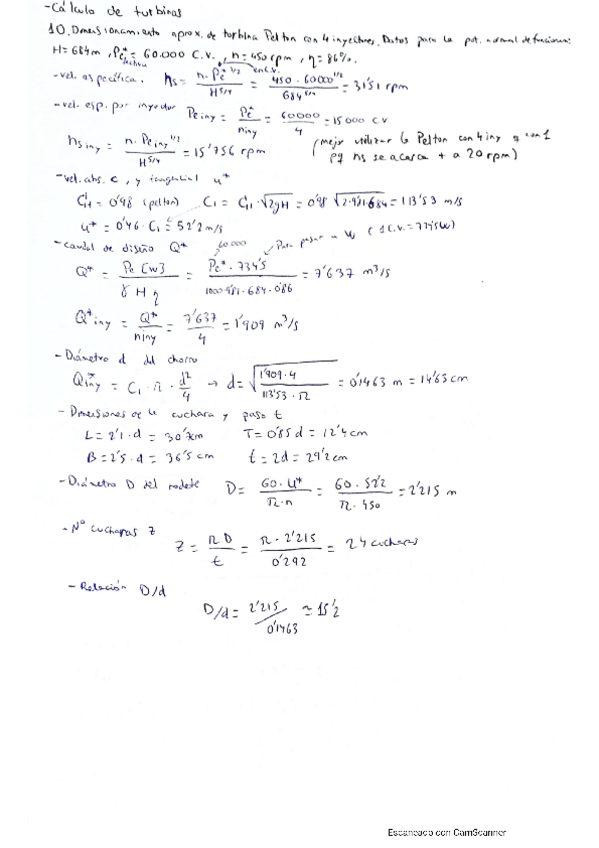 -Cálculo de turbinas
10. Dimensionamiento aprox. de turbina Pelton con 4 inyectores. Datos para la pot. normal de funcionam:
H = 684m , Pe* = 60.000 C.V. , n = 450 rpm , η = 86%.
efectiva en C.V.
-vel. específica. ns = n · Pe*^1/2 / H^5/4 = 450 · 60000^1/2 / 684^5/4 = 31'51 rpm
-vel. esp. por inyector Pe iny = Pe* / niny = 60000 / 4 = 15000 CV
ns iny = n · Pe iny^1/2 / H^5/4 = 15'756 rpm (mejor utilizar la Pelton con 4 iny q con 1
pq ns se acerca + a 20 rpm)
-vel. abs. c, y tangencial u*
C1 = 0'98 (pelton) C1 = C1 · √2gH = 0'98 √2·9'81·684 = 113'53 m/s
u* = 0'46 · C1 = 52'2 m/s
-Caudal de diseño Q* 60.000 Para pasar a W (1 C.V. = 734'5W)
Q* = Pe [W] / γ H η = Pe* · 734'5 / 1000·9'81·684·0'86 = 7'637 m³/s
Q*iny = Q* / niny = 7'637 / 4 = 1'909 m³/s
-Diámetro d del chorro
Q*iny = C1 · π · d² / 4 → d = √1'909·4 / 113'53·π = 0'1463 m = 14'63 cm
-Dimensiones de la cuchara y paso t
L = 2'1 · d = 30'7cm T = 0'85 d = 12'4 cm
B = 2'5 · d = 36'5 cm t = 2d = 29'2 cm
-Diámetro D del rodete D = 60 · u* / π · n = 60 · 52'2 / π · 450 = 2'215 m
-Nº cucharas Z
Z = π D / t = π · 2'215 / 0'292 = 24 cucharas
-Relación D/d
D/d = 2'215 / 0'1463 ≈ 15'2
Escaneado con CamScanner